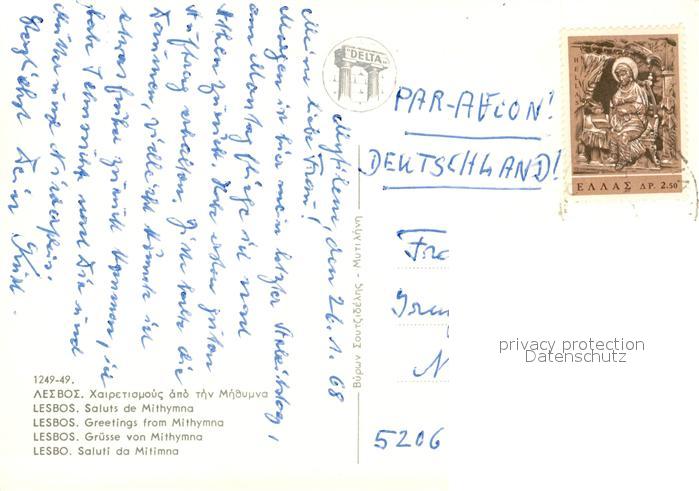 Mytilene, den 26.1.68
Meine liebe Frau!
Morgen ist hier mein letzter Arbeitstag,
am Montag fliege ich nach
Athen zurück. Habe schon guten
Auftrag erhalten. Bitte halte die
Daumen, vielleicht könnte ich
etwas früher zurück kommen, ich
habe Sehnsucht nach Dir und
Mutter und
Herzlichst Dein
DELTA
PAR-AVION!
DEUTSCHLAND!
HELLAS
ΕΛΛΑΣ ΔΡ. 2.50
5206
privacy protection
Datenschutz
Βύρων Σουτζιδέλης - Μυτιλήνη
1249-49.
ΛΕΣΒΟΣ. Χαιρετισμούς ἀπό τήν Μήθυμνα
LESBOS. Saluts de Mithymna
LESBOS. Greetings from Mithymna
LESBOS. Grüsse von Mithymna
LESBO. Saluti da Mitimna